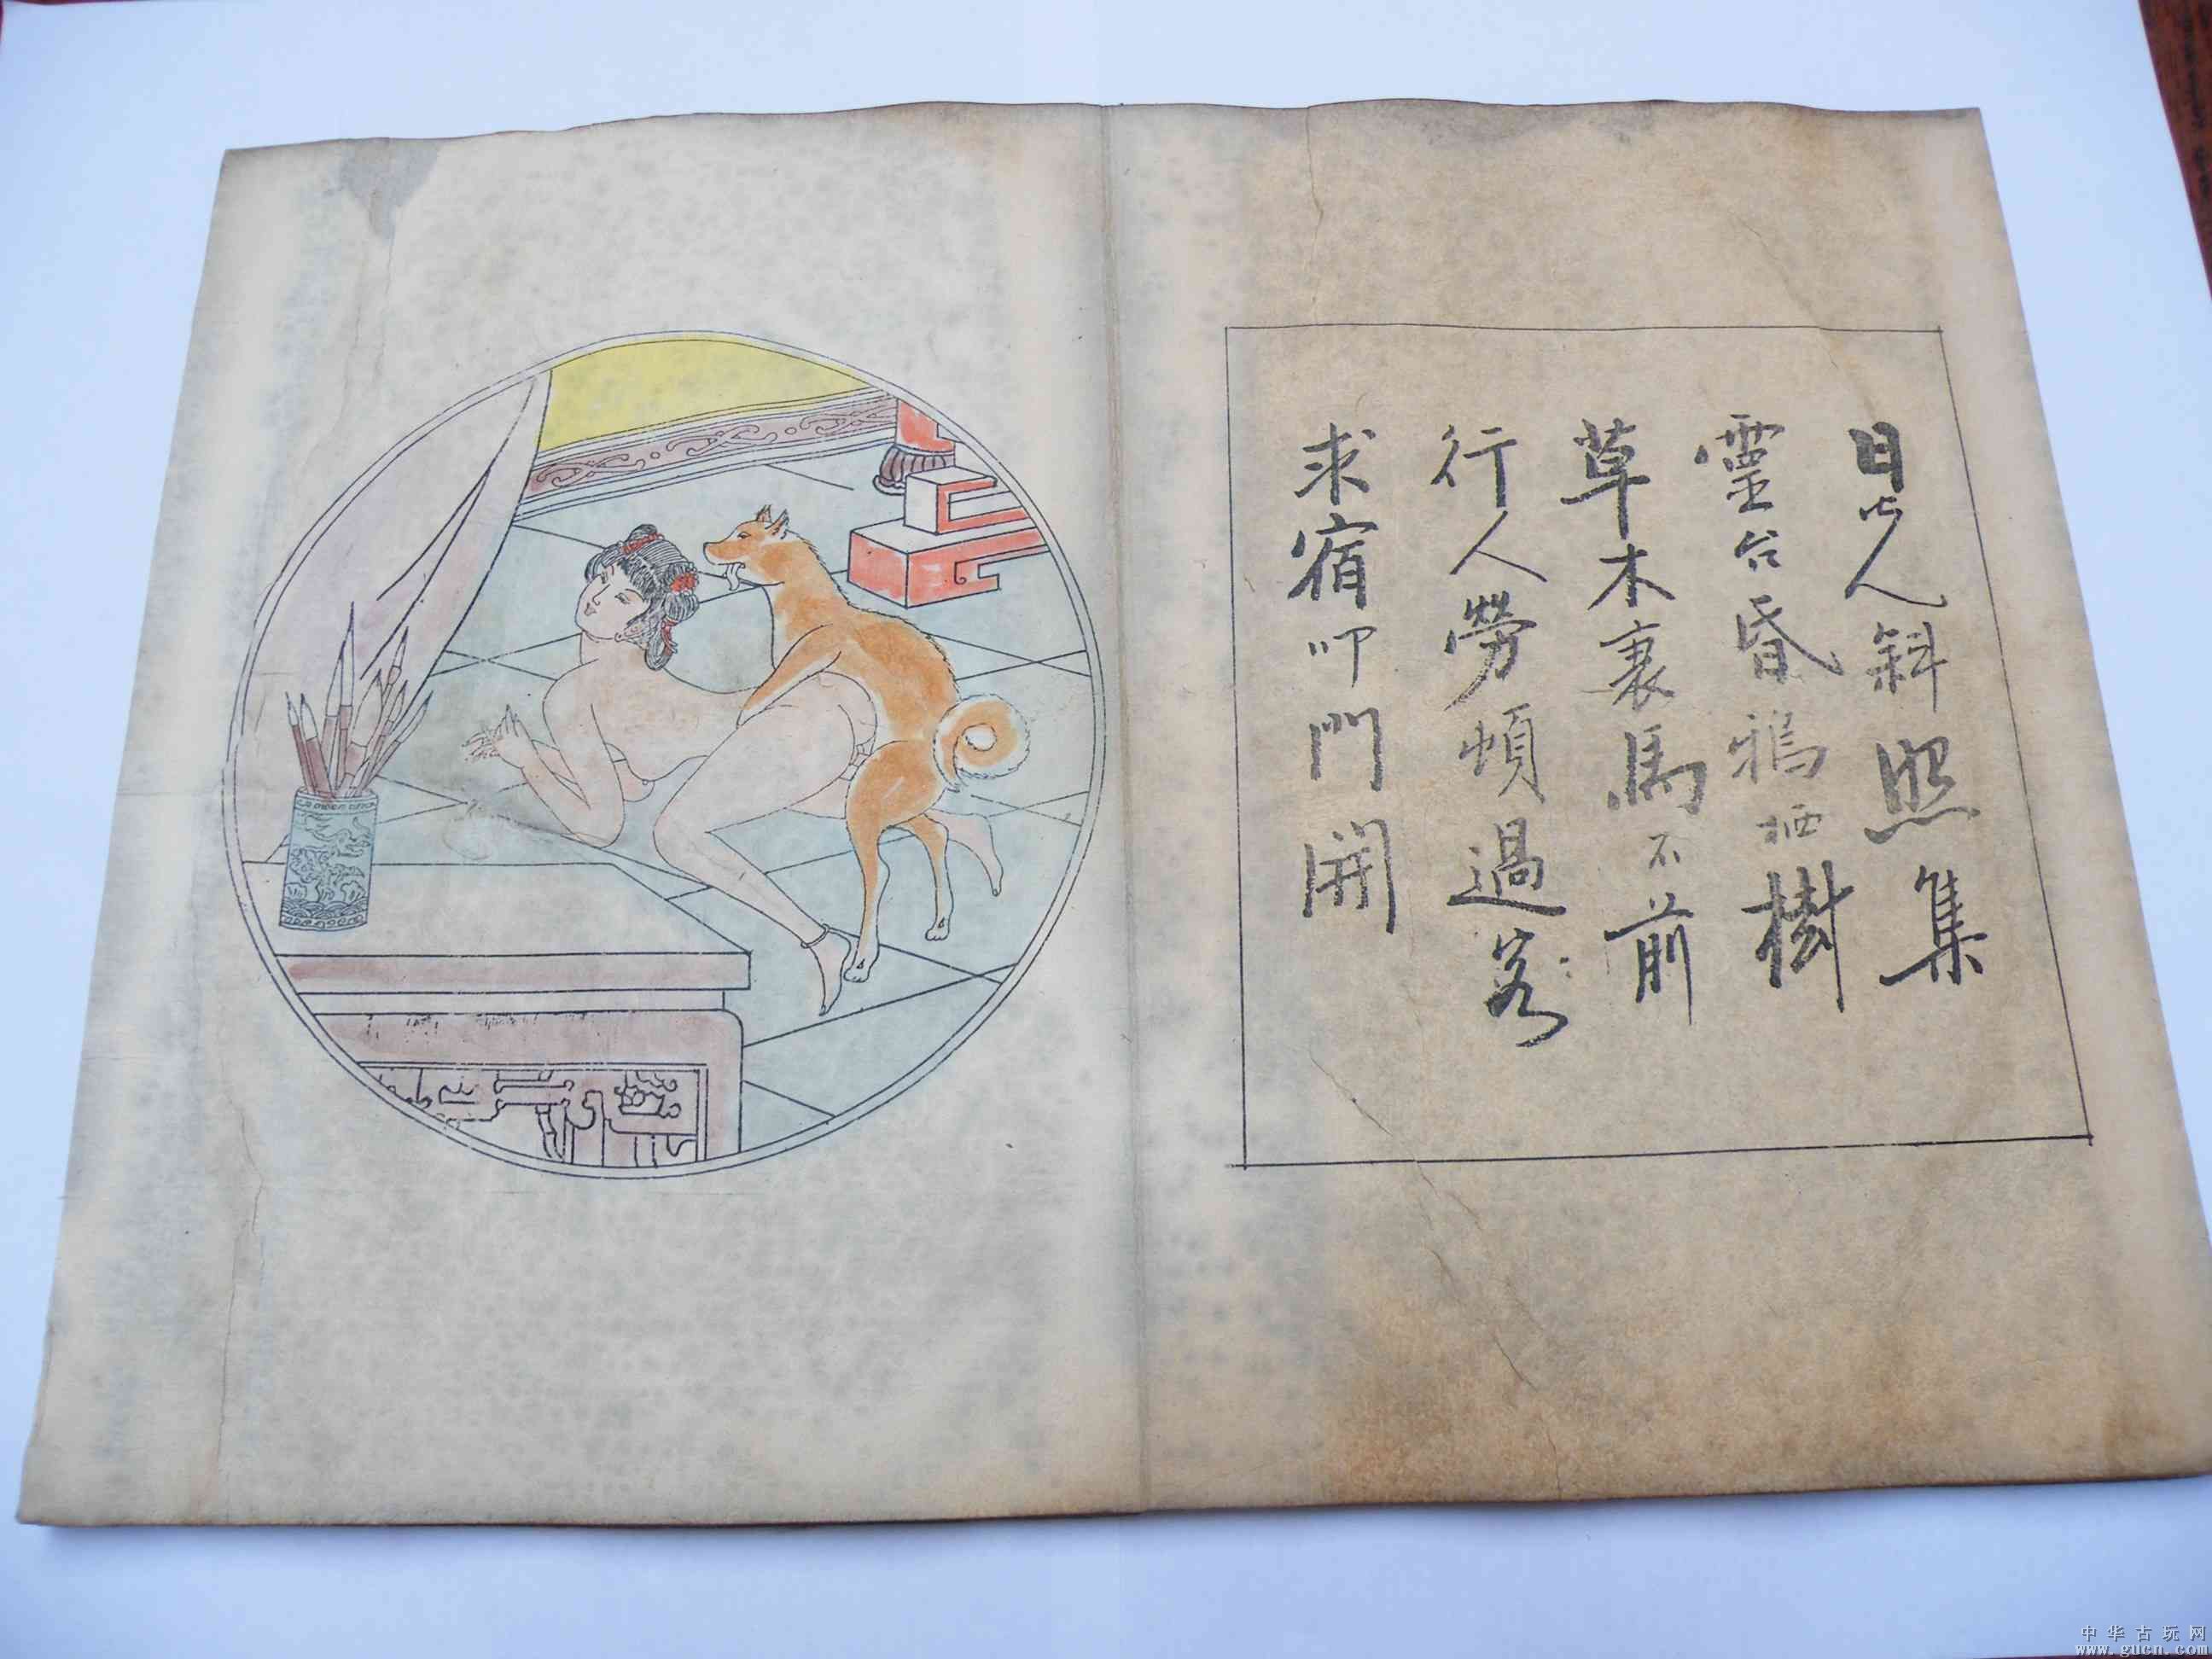 日人斜照集
靈台昏鴉栖樹
草木裏馬不前
行人勞頓過客
求宿叩門開
中华古玩网
www.gucn.com